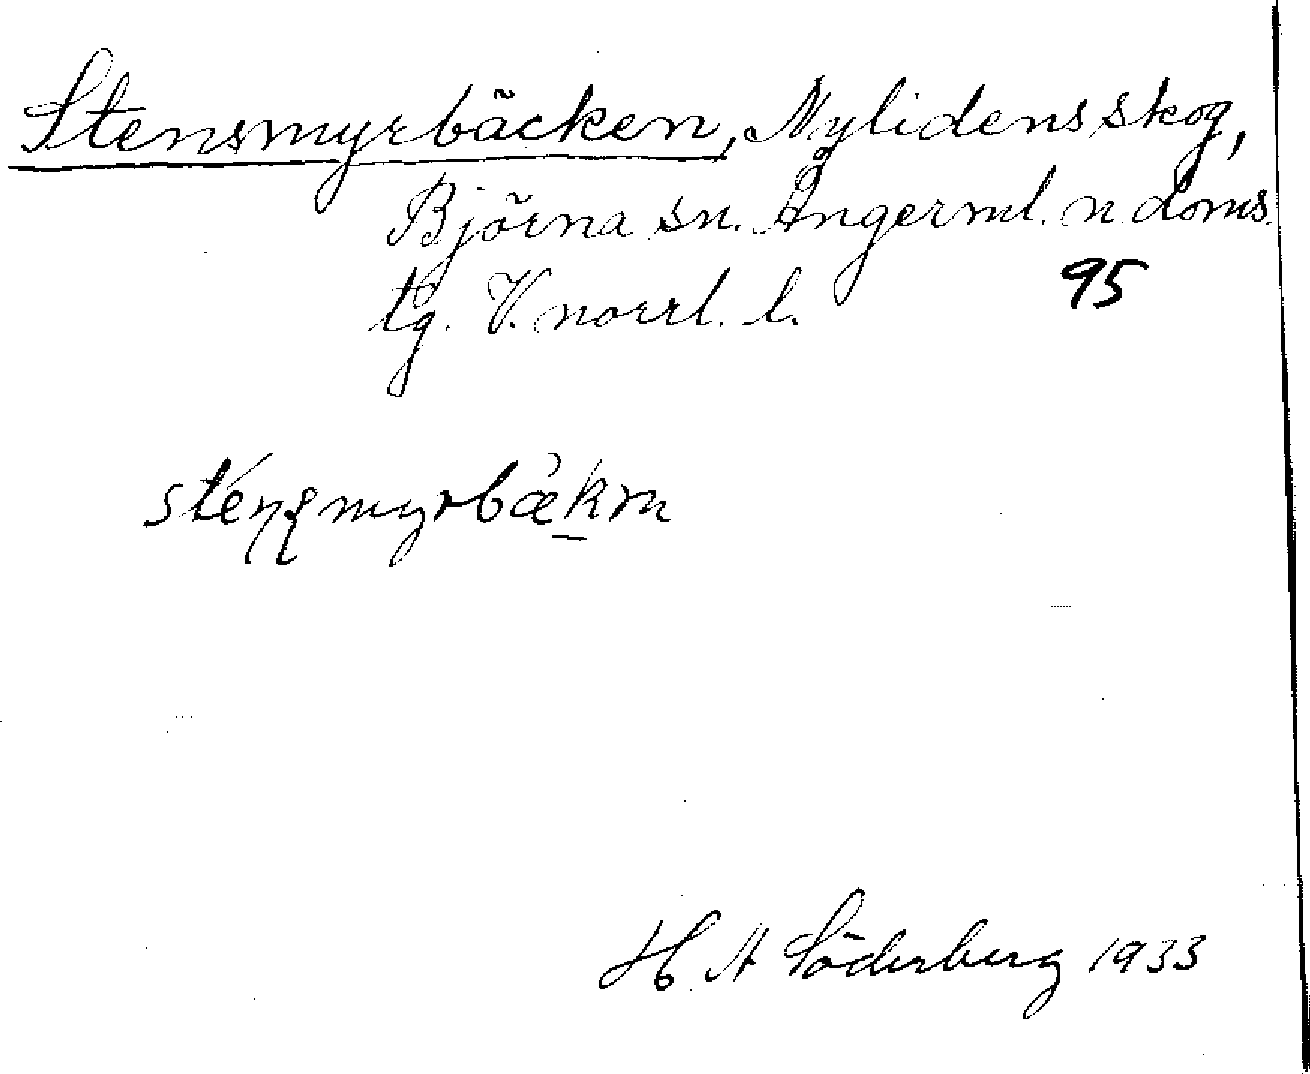 Stensmyrbäcken, Nylidens skog,
Björna sn. Ångerml. n doms.
tg. V. norrl. l.
95
H. A Söderberg 1933